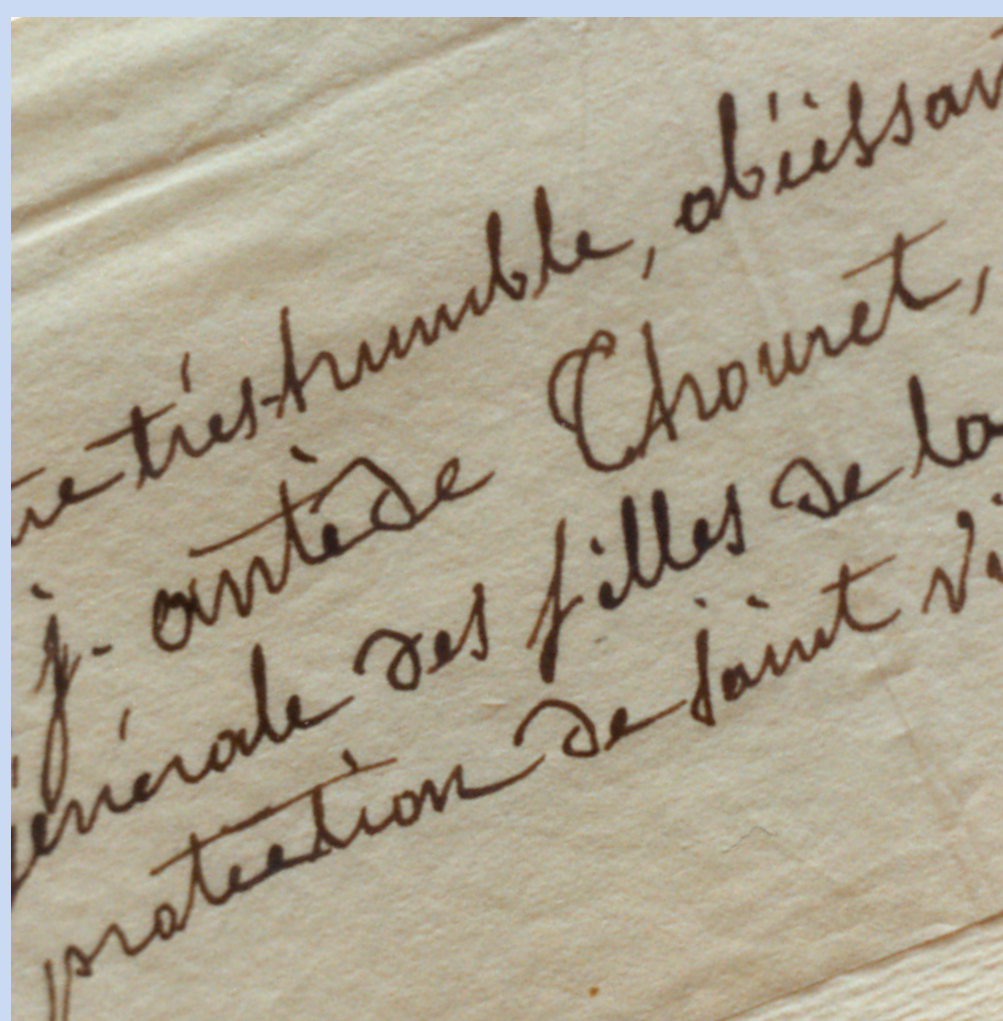 tre très-humble, obéissan
j. antède Thouret,
générale des filles de la
protection de saint Vi